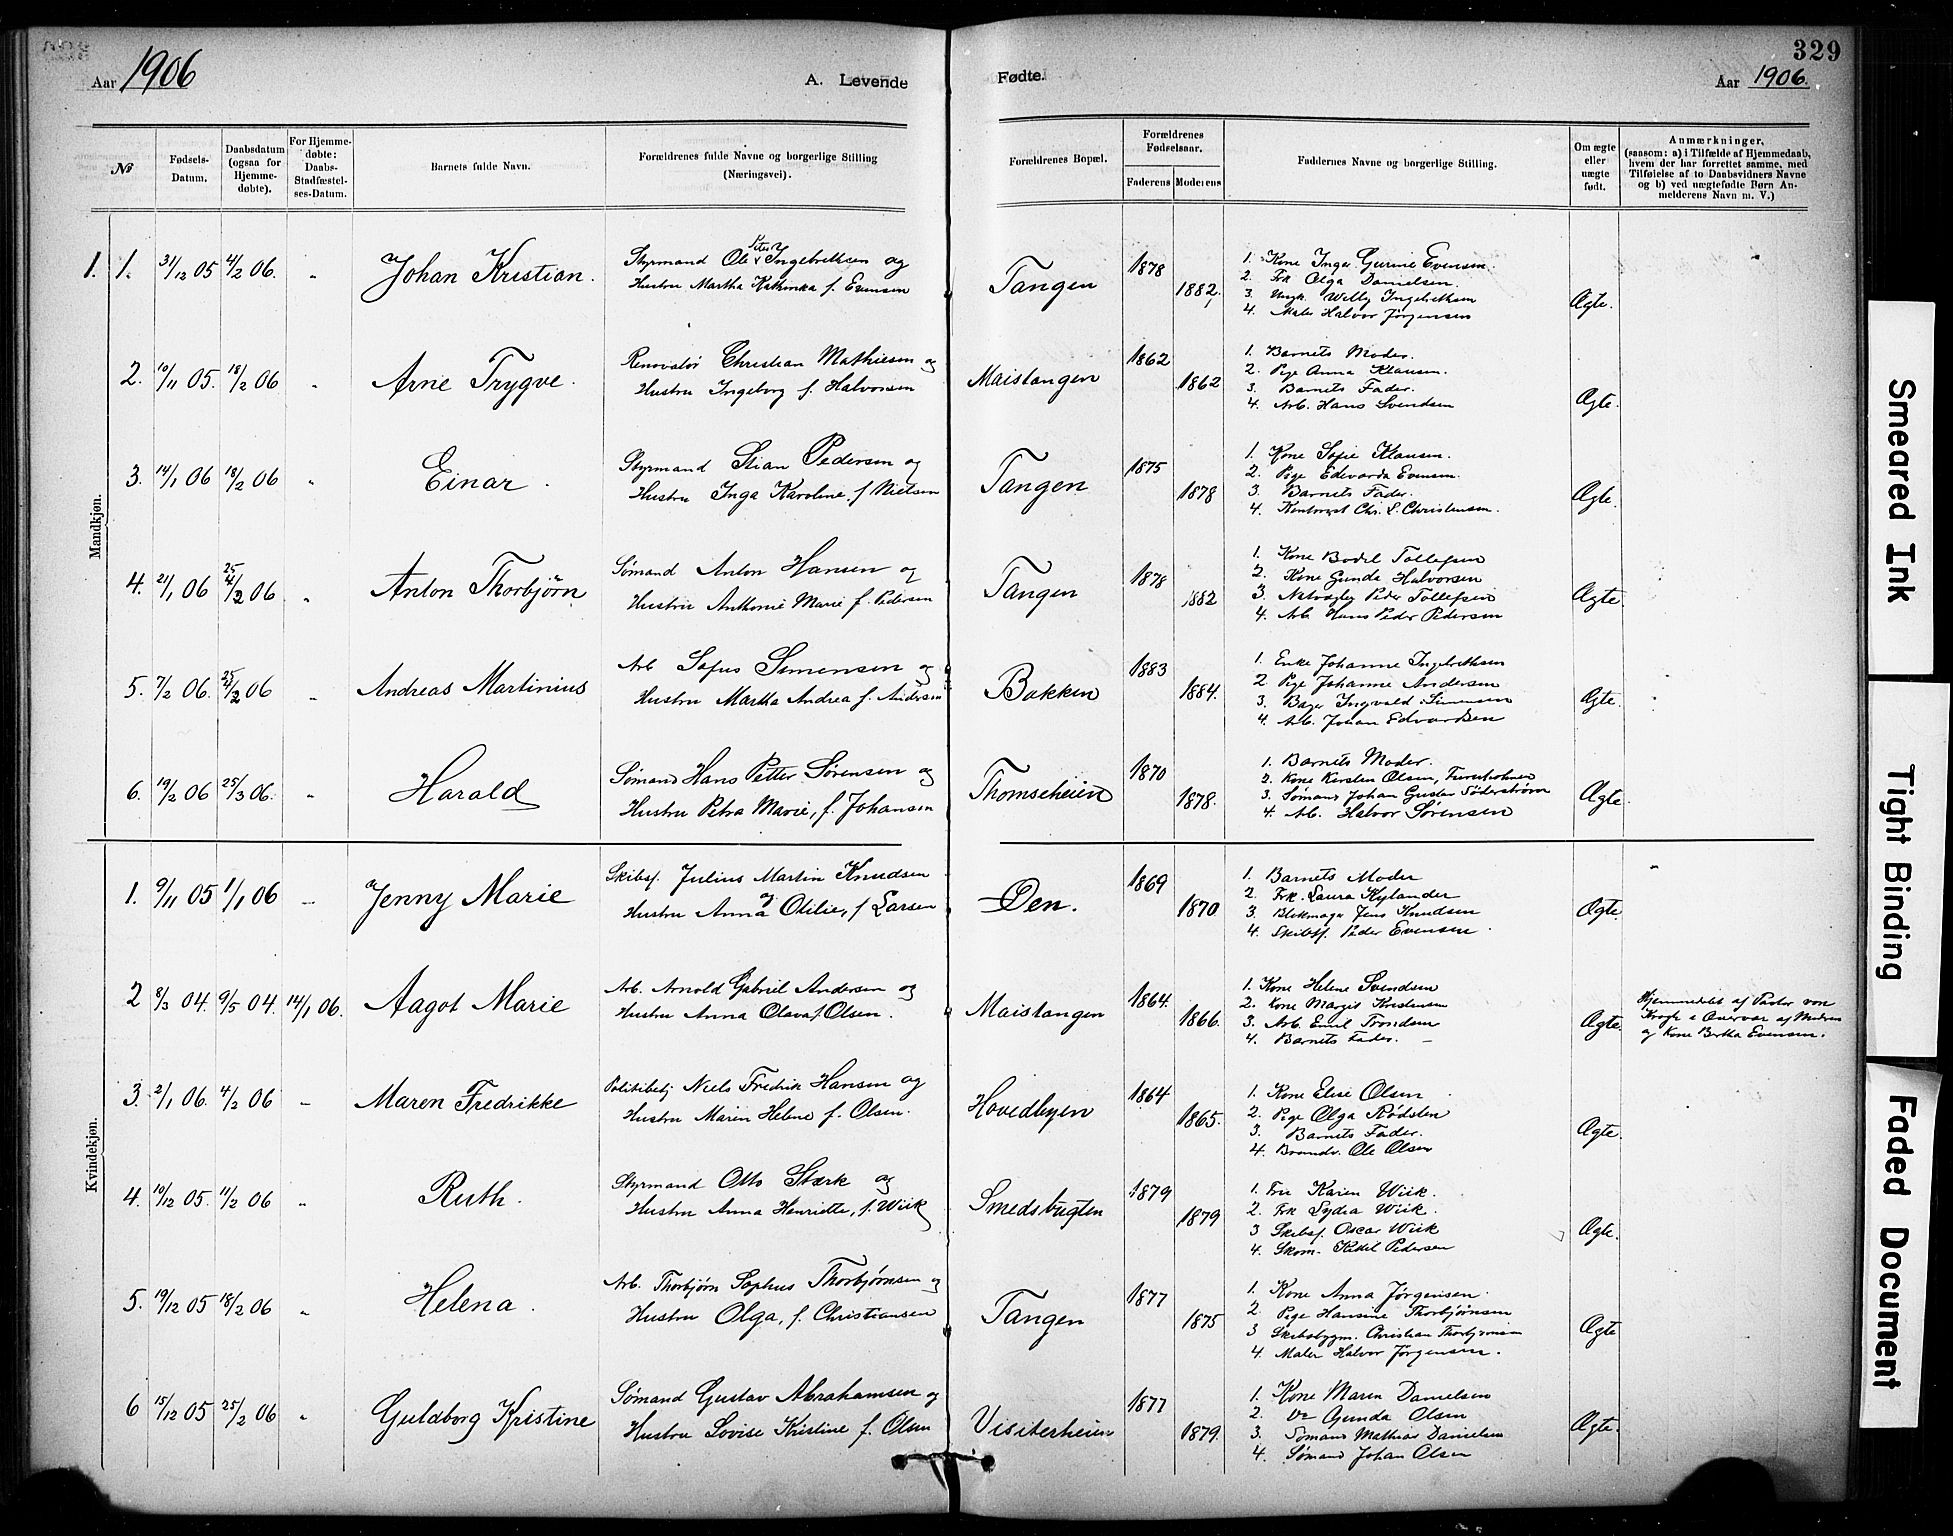 329
Aar 1906
A. Levende
Fødte.
Aar 1906.
№
Fødsels-
Datum.
Daabsdatum
(ogsaa for
Hjemme-
døbte).
For Hjemme-
døbte:
Daabs-
Stadfæstel-
ses-Datum.
Barnets fulde Navn.
Forældrenes fulde Navne og borgerlige Stilling
(Næringsvei).
Forældrenes Bopæl.
Forældrenes
Fødselsaar.
Faderens
Moderens
Faddernes Navne og borgerlige Stilling.
Om ægte
eller
uægte
født.
Anmærkninger,
(saasom: a) i Tilfælde af Hjemmedaab,
hvem der har forrettet samme, med
Tilføielse af to Daabsvidners Navne
og b) ved uægtefødte Børn An-
melderens Navn m. V.)
Mandkjøn.
1. 1. 31/12 05 4/2 06. „ Johan Kristian.
Styrmand Ole Peter Ingebretsen og
Hustru Martha Kathinka f. Evensen
Tangen 1878 1882.
1. Kone Inger Gurine Evensen.
2. Frk Olga Danielsen.
3. Ungk. Willy Ingebrethsen
4. Maler Halvor Jørgensen
Ægte.
2. 10/11 05. 18/2 06 „ Arne Trygve.
Renovatør Christian Mathiesen og
Hustru Ingeborg f. Halvorsen
Maistangen 1862 1862
1. Barnets Moder.
2. Pige Anna Klausen.
3. Barnets Fader.
4. Arb. Hans Svendsen
Ægte.
3. 14/1 06 18/2 06 „ Einar.
Styrmand Stian Pedersen og
Hustru Inga Karoline f. Nielsen
Tangen 1875 1878
1. Kone Sofie Klausen.
2. Pige Edvarda Evensen.
3. Barnets Fader.
4. Kontorist Chr. L. Christensen.
Ægte.
4. 21/1 06 25/2 06 „ Anton Thorbjørn
Sømand Anton Hansen og
Hustru Anthonie Marie f. Pedersen
Tangen 1878 1882
1. Kone Bodil Tollefsen
2. Kone Gunda Halvorsen
3. Natvagter Peder Tollefsen
4. Arb. Hans Peder Pedersen
Ægte.
5. 7/2 06. 25/2 06 „ Andreas Martinius
Arb Sofus Simensen og
Hustru Martha Andrea f. Andersen
Bakken 1883 1884.
1. Enke Johanne Ingebrethsen
2. Pige Johanne Andersen
3. Bager Ingvald Simensen
4. Arb. Johan Edvardsen
Ægte.
6. 19/2 06 25/3 06. „ Harald
Sømand Hans Petter Sørensen og
Hustru Petra Marie, f. Johansen
Thomseheien 1870 1878.
1. Barnets Moder.
2. Kone Kirsten Olsen, Furuholmen
3. Sømand Johan Gustav Söderstrøm
4. Arb. Halvor Sørensen
Ægte.
Kvindekjøn.
1. 9/11 05 1/1 06 „ Jenny Marie
Skibsf. Julius Martin Knudsen
og Hustru Anna Otilie, f. Larsen
Øen. 1869 1870
1. Barnets Moder
2. Frk. Laura Kylander
3. Blokmager Jens Knudsen
4. Skibsf. Peder Evensen.
Ægte
2 8/3 04. 9/5 04. 14/1 06. Aagot Marie
Arb. Arnold Gabriel Andersen og
Hustru Anna Olava f. Olsen.
Maistangen 1864. 1866.
1. Kone Helene Svendsen
2. Kone Margit Kristensen
3. Arb. Emil Trondsen
4. Barnets Fader. —
Ægte.
Hjemmedøbt af Pastor von
Krogh i Overvær af Modren
og Kone Bertha Evensen.
3. 2/1 06. 4/2 06 „ Maren Fredrikke
Politibetj Niels Fredrik Hansen og
Hustru Maren Helene f. Olsen.
Hovedbyen 1864 1865.
1. Kone Elise Olsen
2. Pige Olga Rødsten
3. Barnets Fader.
4. Brandv. Ole Olsen
Ægte.
4. 10/12 05. 11/2 06 „ Ruth.
Styrmand Otto Stærk og
Hustru Anna Henriette, f. Wiik
Smedsbugten 1879 1879
1. Fru Karen Wiik.
2. Frk Lydia Wiik.
3 Skibsf. Oscar Wiik
4. Skom. Kittil Pedersen
Ægte.
5. 19/12 05 18/2 06 „ Helena.
Arb. Thorbjørn Sophus Thorbjørnsen og
Hustru Olga, f. Christiansen
Tangen 1877 1875
1. Kone Anna Jørgensen.
2. Pige Hansine Thorbjørnsen
3 Skibsbygm. Christian Thorbjørnsen
4. Maler Halvor Jørgensen.
Ægte
6 15/12 05 25/2 06 „ Guldborg Kristine
Sømand Gustav Abrahamsen og
Hustru Lovise Kristine f. Olsen
Visiterheien 1877 1879.
1. Kone Maren Danielsen
2. Do Gunda Olsen
3. Sømand Mathias Danielsen
4. Sømand Johan Olsen
Ægte.
Smeared Ink
Tight Binding
Faded Document